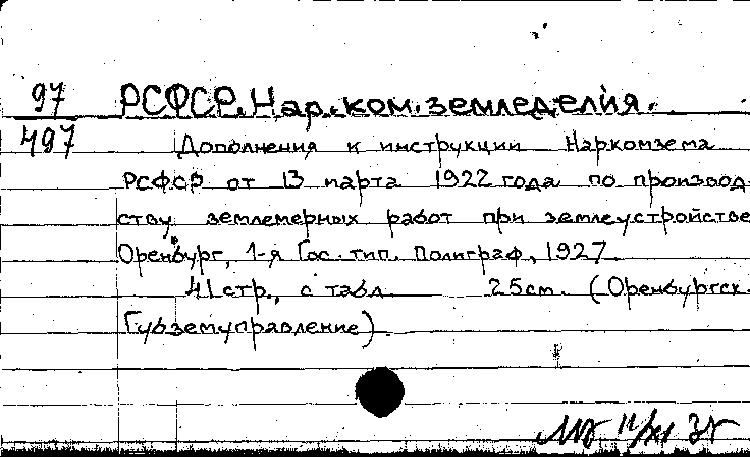 97
497
РСФСР. Нар. ком. земледелия.
Дополнения к инструкции Наркомзема
РСФСР от 13 марта 1922 года по производ-
ству землемерных работ при землеустройстве
Оренбург, 1-я Гос. тип. Полиграф, 1927.
41 стр., с табл. 25 см. (Оренбургск.
Губземуправление)